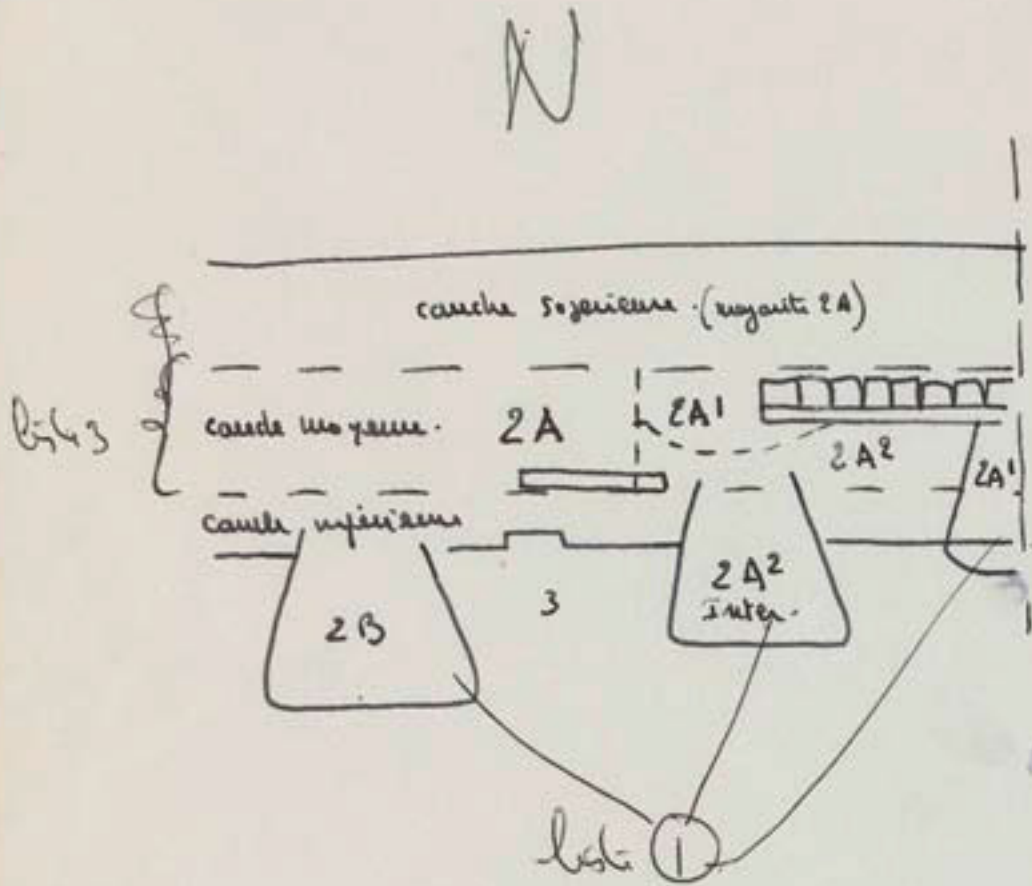 N
couche supérieure. (majorité 2A)
liste 3
couche moyenne. 2A 2A¹
2A² 2A¹
couche inférieure
2B 3 2A²
inter.
liste 1